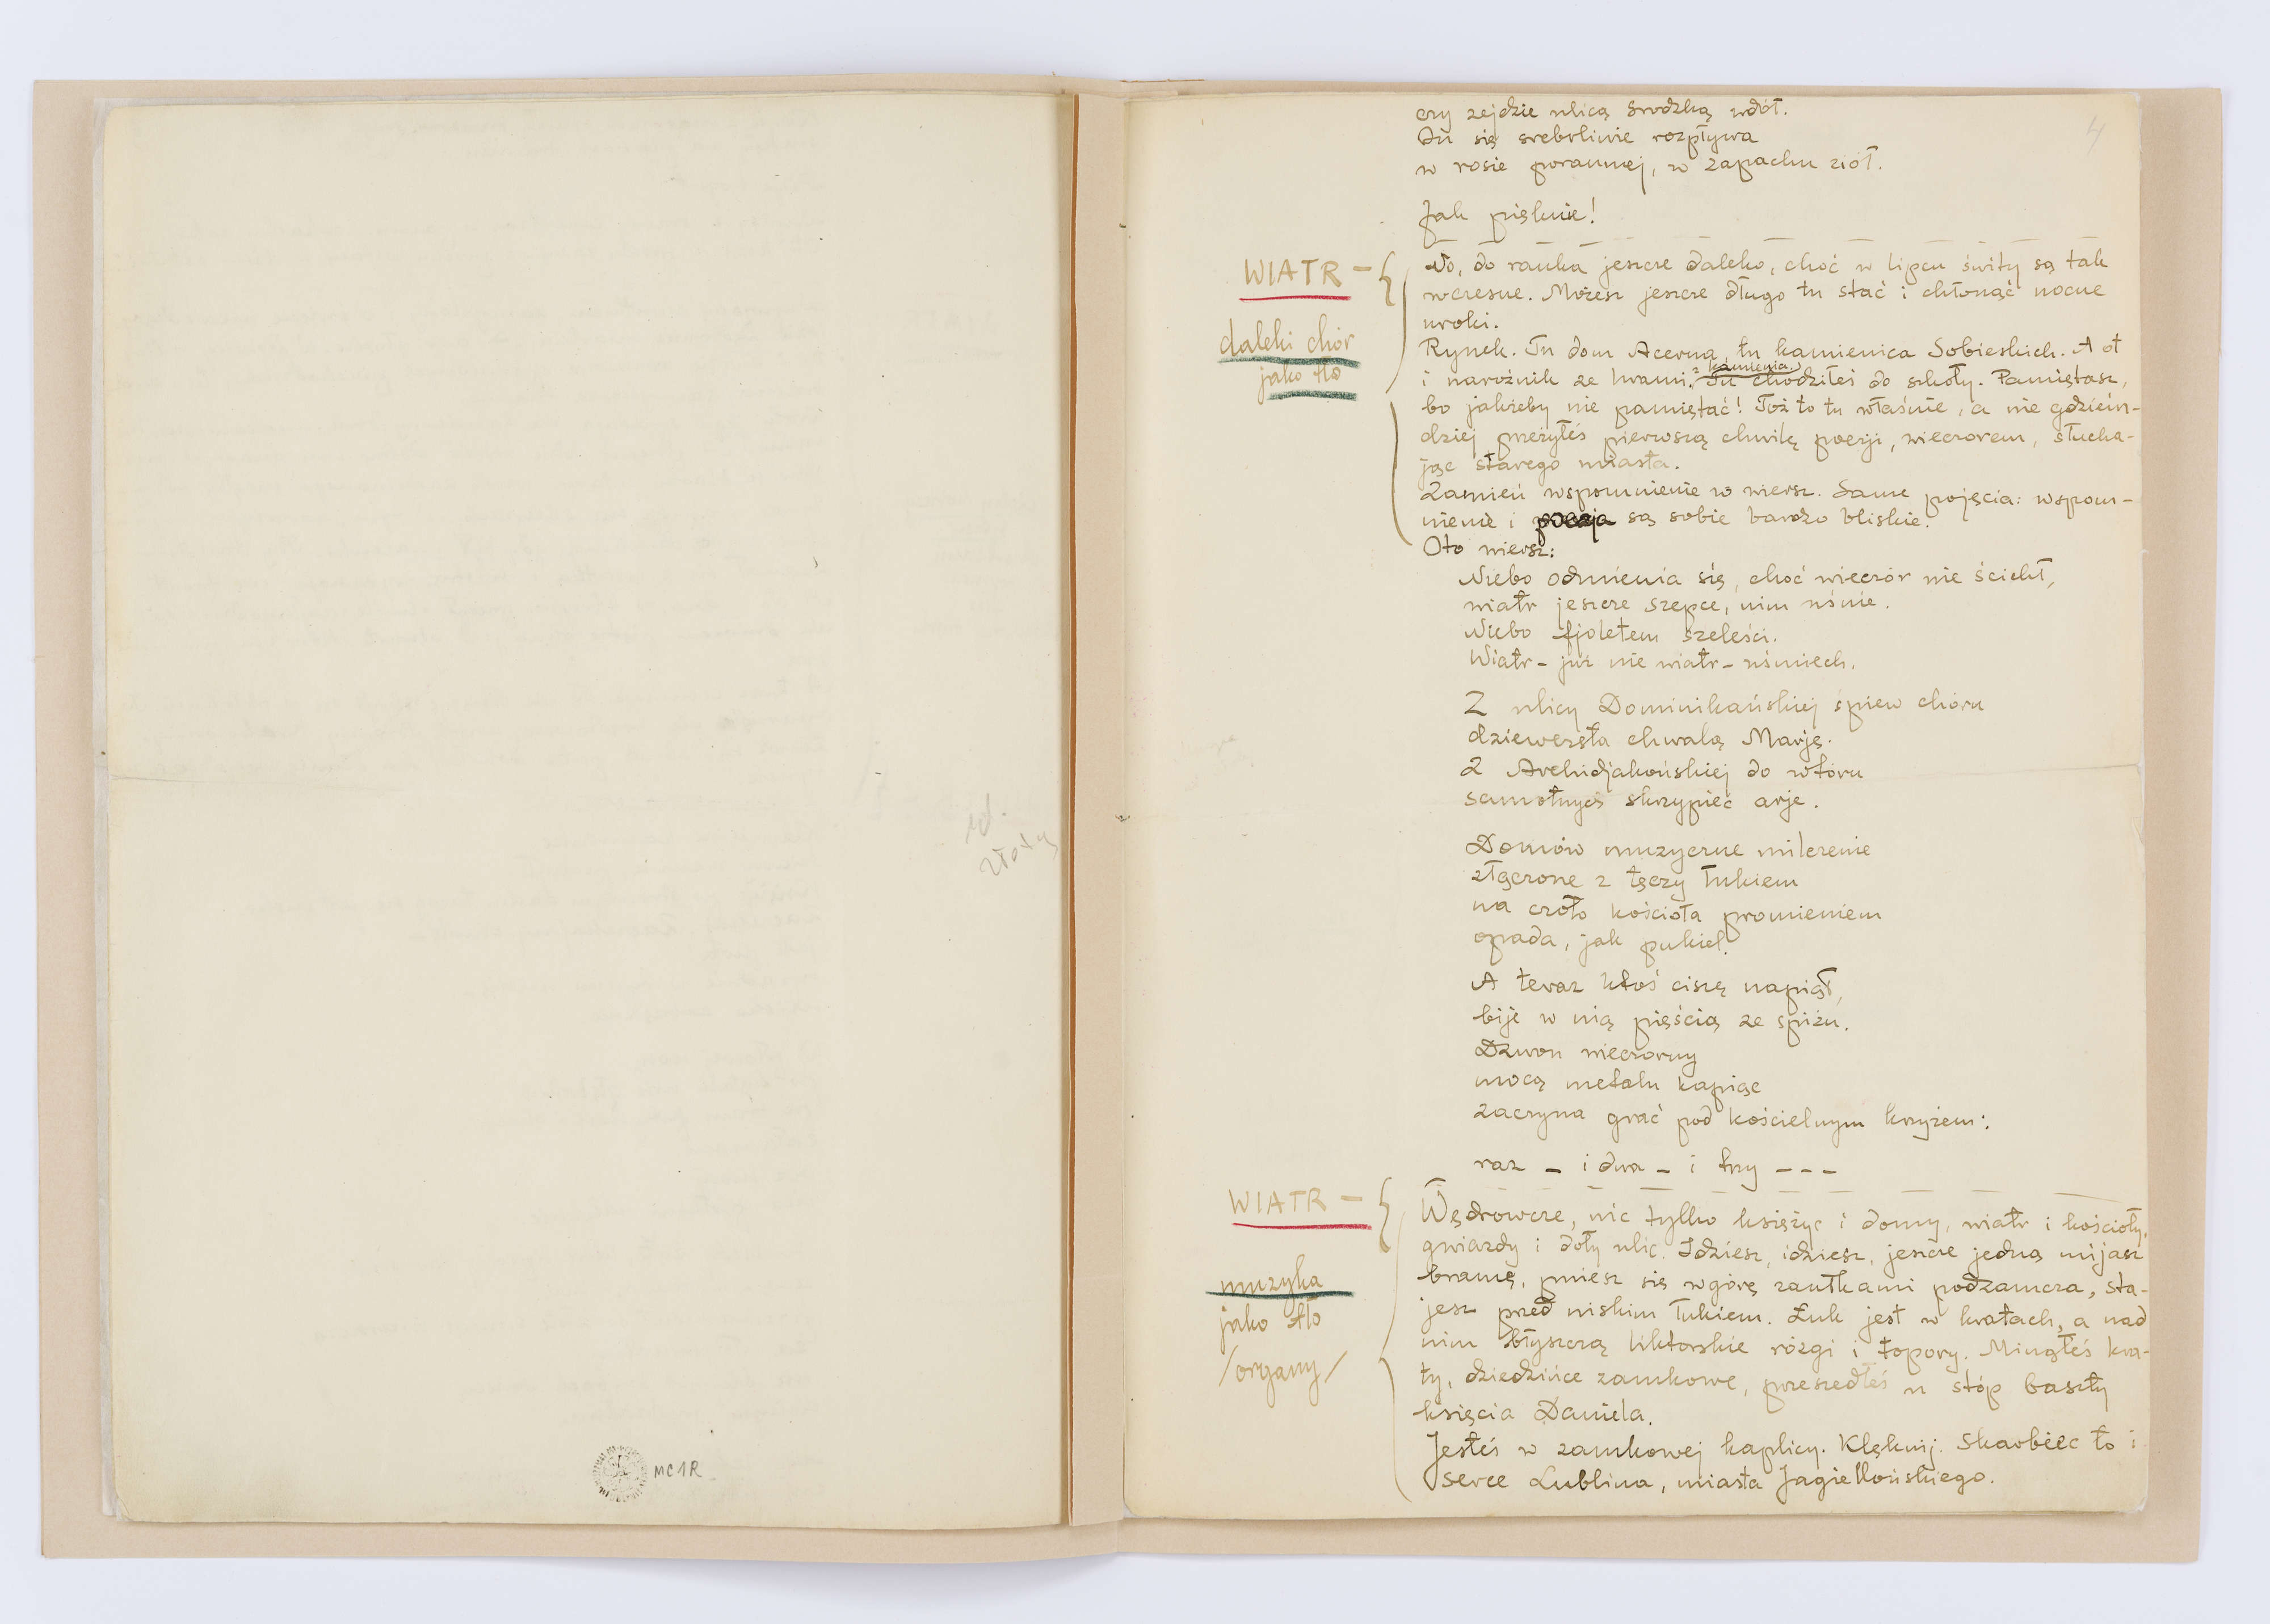 zł.
złoty
MC1R
4
czy zejdzie ulicą Grodzką wdół.
Tu się srebrliwie rozpływa
w rosie porannej, w zapachu ziół.
Jak pięknie!
WIATR –
No, do ranka jeszcze daleko, choć w lipcu świty są tak
wczesne. Możesz jeszcze długo tu stać i chłonąć nocne
uroki.
daleki chór
jako tło
Rynek. Tu dom Acerna, tu kamienica Sobieskich. A ot
z kamienia.
i narożnik ze lwami. Tu chodziłeś do szkoły. Pamiętasz,
bo jakżeby nie pamiętać! Toż to tu właśnie, a nie gdziein-
dziej przeżyłeś pierwszą chwilę poezji, wieczorem, słucha-
jąc starego miasta.
Zamień wspomnienie w wiersz. Same pojęcia: wspom-
nienie i poezja są sobie bardzo bliskie.
Oto wiersz:
Niebo odmienia się, choć wieczór nie ścichł,
wiatr jeszcze szepce, nim uśnie.
Niebo fjoletem szeleści.
Wiatr – już nie wiatr – uśmiech.
Z ulicy Dominikańskiej śpiew chóru
dziewczęta chwalą Marję.
Z Archidjakońskiej do wtóru
samotnych skrzypiec arje.
Domów muzyczne milczenie
złączone z tęczy łukiem
na czoło kościoła promieniem
opada, jak pukiel.
A teraz ktoś ciszę napiął,
bije w nią pięścią ze spiżu.
Dzwon wieczorny
mocą metalu kapiąc
zaczyna grać pod kościelnym krzyżem:
raz – i dwa – i trzy – – –
WIATR –
Wędrowcze, nie tylko księżyc i domy, wiatr i kościoły,
gwiazdy i doły ulic. Idziesz, idziesz, jeszcze jedną mijasz
bramę, pniesz się wgórę zaułkami podzamcza, sta-
jesz przed niskim łukiem. Łuk jest w kratach, a nad
nim błyszczą liktorskie rózgi i topory. Minąłeś kra-
ty, dziedzińce zamkowe, przeszedłeś u stóp baszty
księcia Daniela.
muzyka
jako tło
/organy/
Jesteś w zamkowej kaplicy. Klęknij. Skarbiec to i
serce Lublina, miasta Jagiellońskiego.